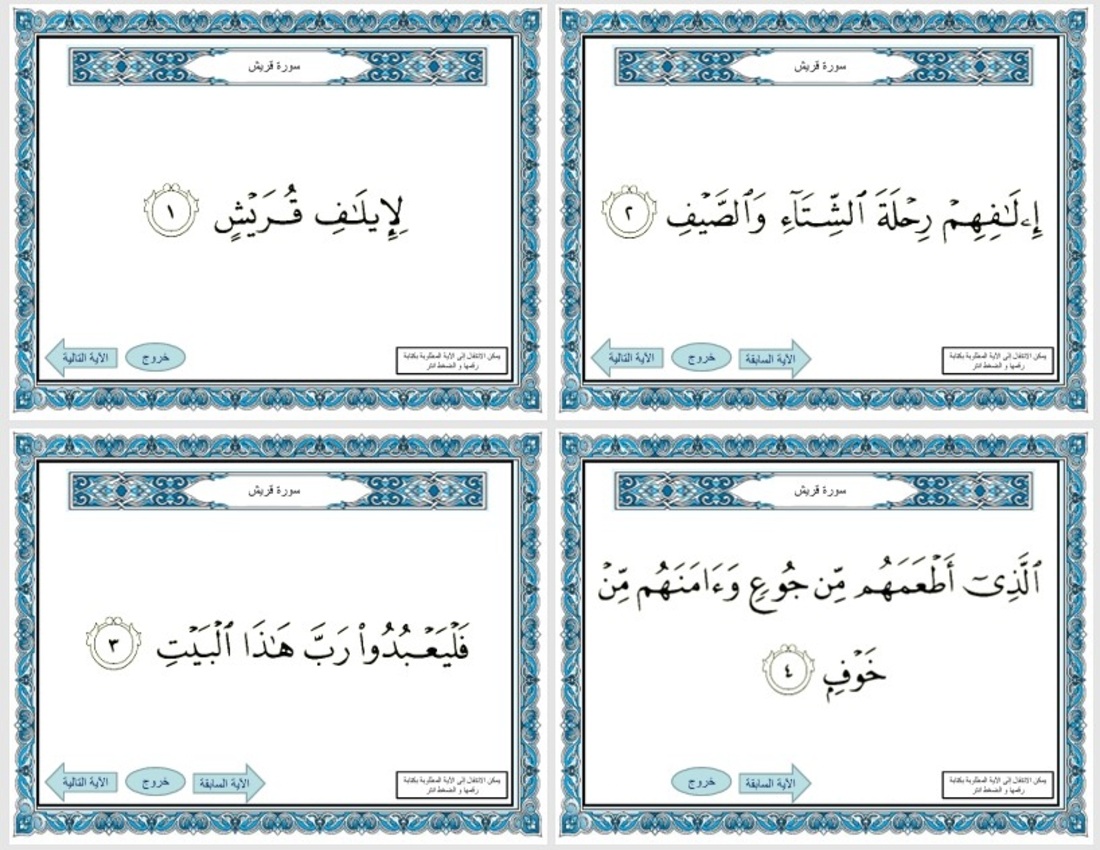 سورة قريش
لِإِيلَٰفِ قُرَيْشٍ ١
الآية التالية
خروج
يمكن الانتقال إلى الآية المطلوبة بكتابة
رقمها و الضغط انتر
سورة قريش
إِۦلَٰفِهِمْ رِحْلَةَ ٱلشِّتَآءِ وَٱلصَّيْفِ ٢
الآية التالية
خروج
الآية السابقة
يمكن الانتقال إلى الآية المطلوبة بكتابة
رقمها و الضغط انتر
سورة قريش
فَلْيَعْبُدُوا۟ رَبَّ هَٰذَا ٱلْبَيْتِ ٣
الآية التالية
خروج
الآية السابقة
يمكن الانتقال إلى الآية المطلوبة بكتابة
رقمها و الضغط انتر
سورة قريش
ٱلَّذِىٓ أَطْعَمَهُم مِّن جُوعٍ وَءَامَنَهُم مِّنْ
خَوْفٍ ٤
خروج
الآية السابقة
يمكن الانتقال إلى الآية المطلوبة بكتابة
رقمها و الضغط انتر